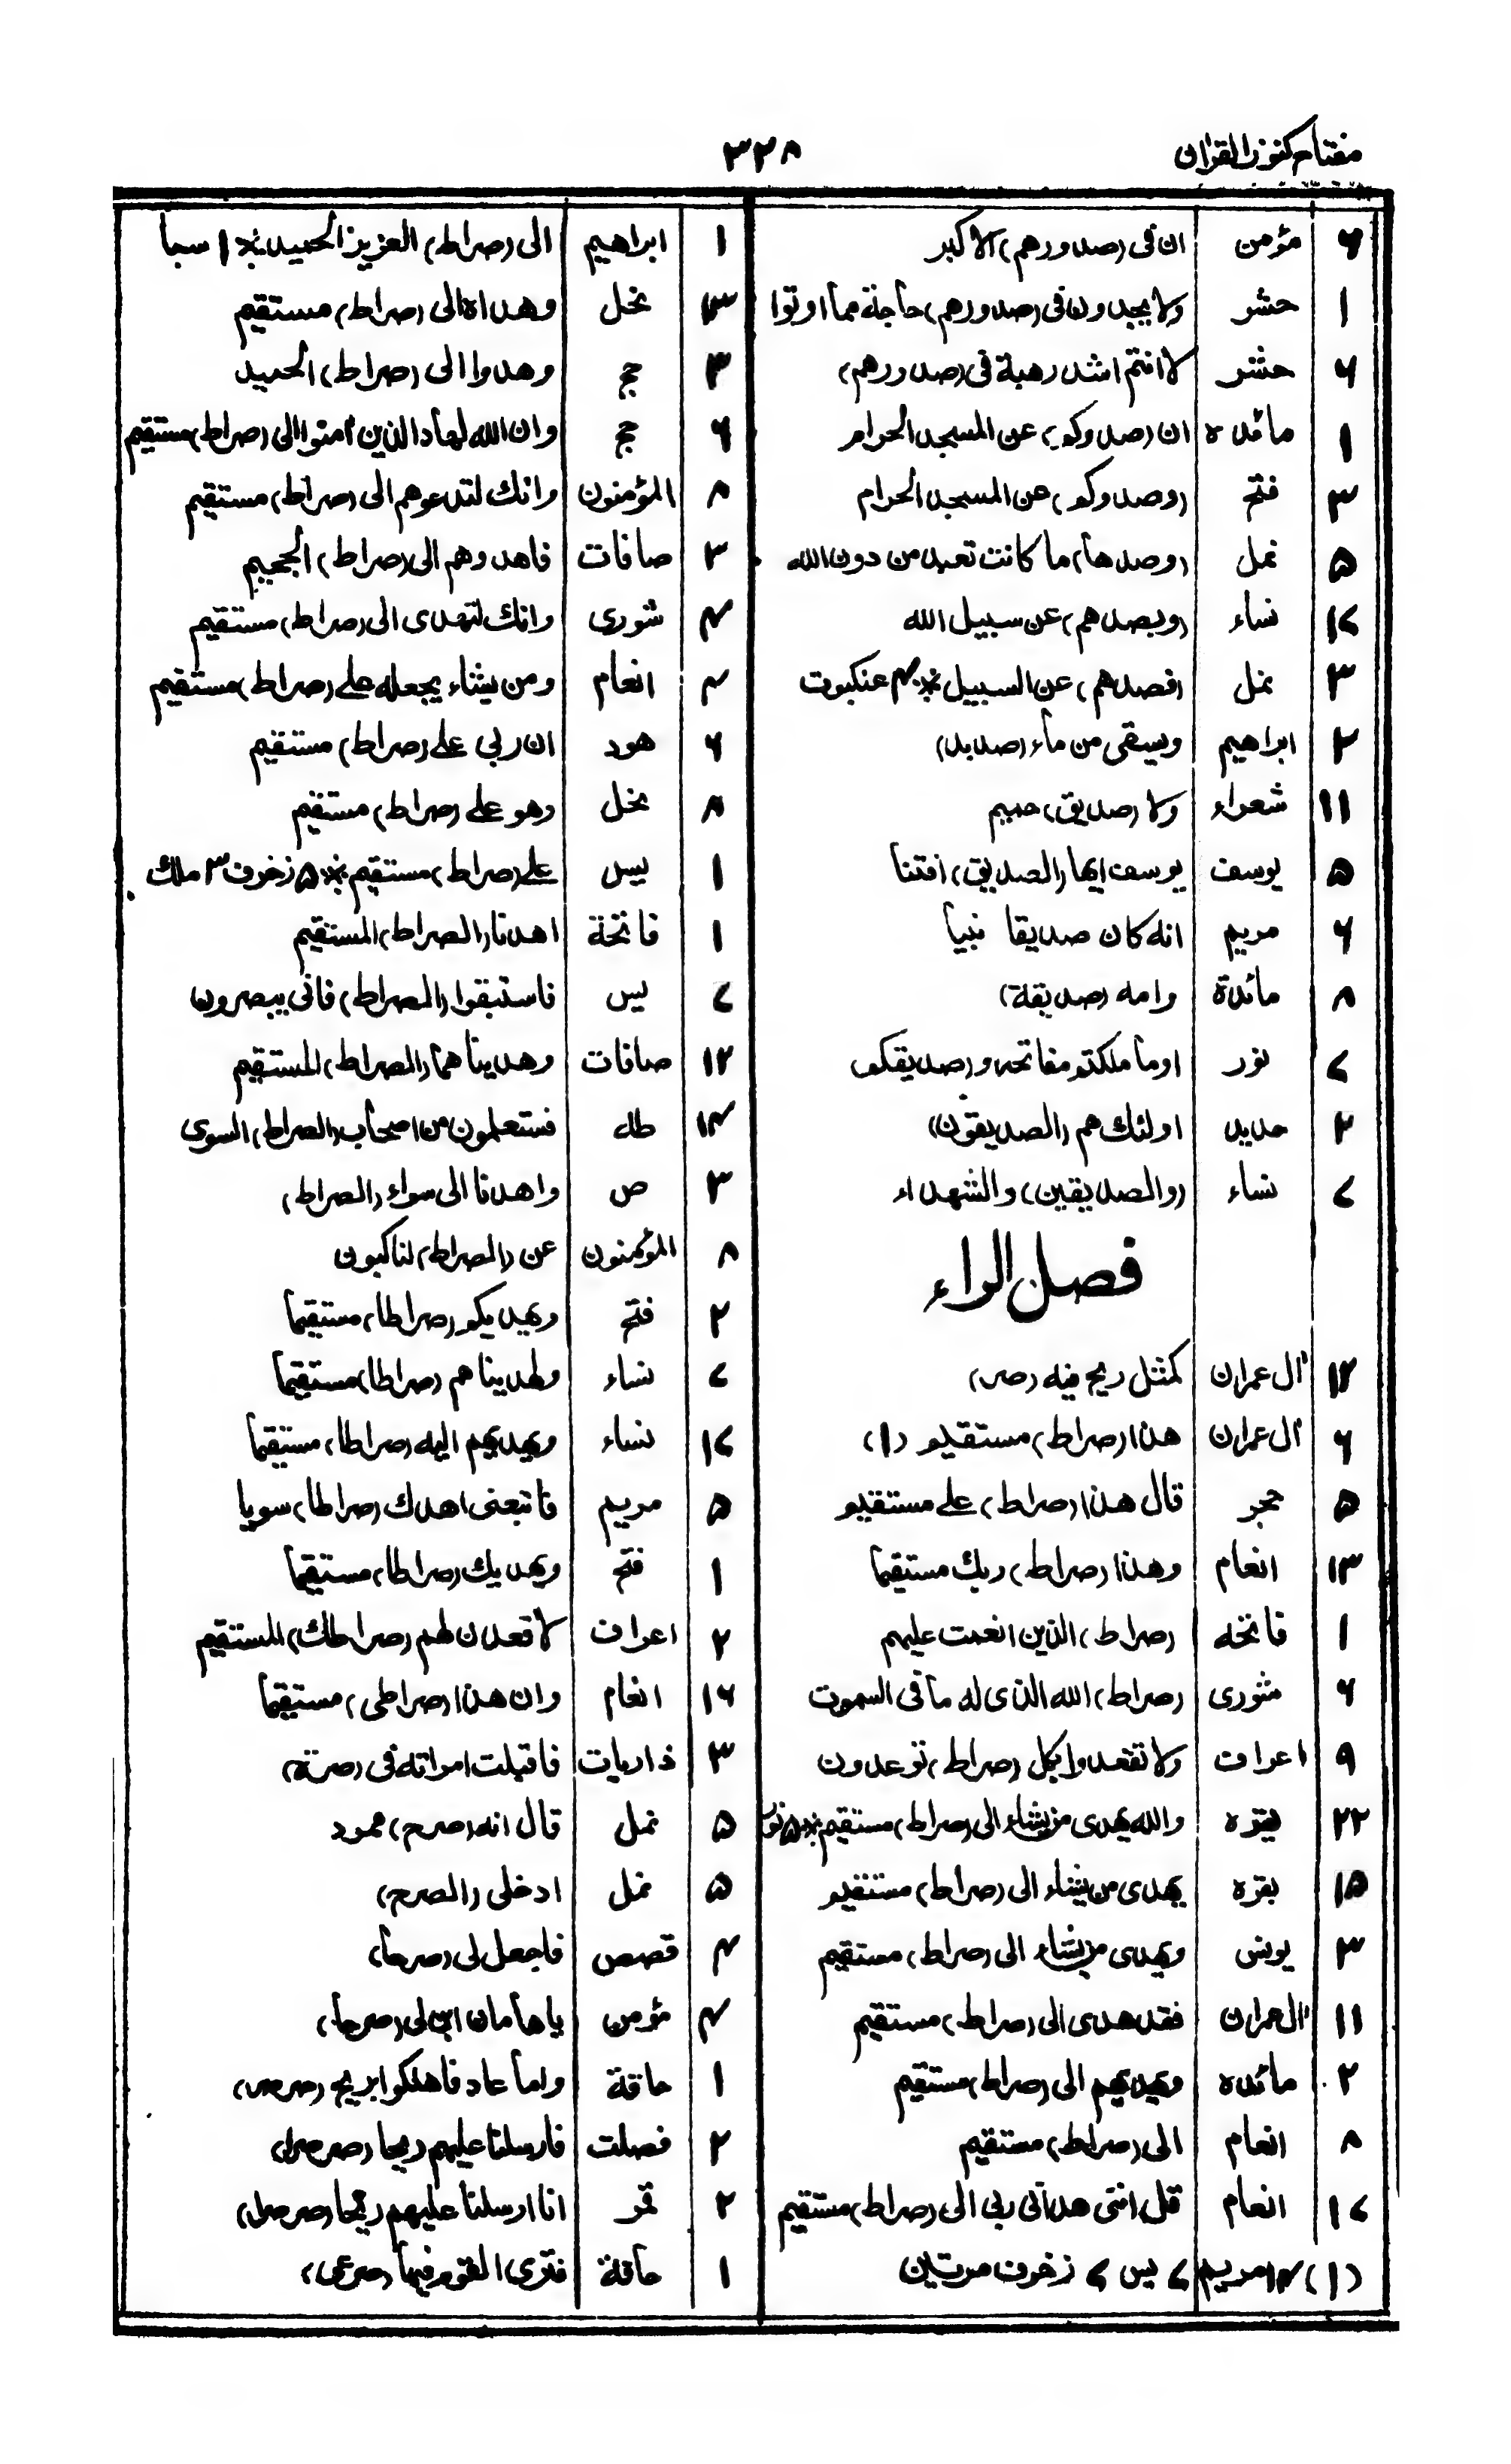 مفتاح كنوز القرآن
٣٢٨
٦ مؤمن ان فى (صدورهم) الا كبر
١ حشر ولا يجدون فى (صدورهم) حاجة مما اوتوا
٢ حشر لا انتم اشد رهبة فى (صدورهم)
١ مائده ان (صدوكم) عن المسجد الحرام
٣ فتح (وصدوكم) عن المسجد الحرام
۵ نمل (وصدها) ما كانت تعبد من دون الله
نساء (وبصدهم) عن سبيل الله
٣ نمل (فصدهم) عن السبيل ※ ۴ عنكبوت
٣ ابراهيم ويسقى من ماء (صديد)
١١ شعراء ولا (صديق) حميم
۵ يوسف يوسف ايها (الصديق) افتنا
٦ مريم انه كان صديقا نبيا
٨ مائدة وامه (صديقة)
٧ نور او ما ملكتم مفاتحه و (صديقكم)
٢ حديد اولئك هم (الصديقون)
٧ نساء (والصديقين) والشهداء
فصل الراء
١٢ آل عمران كمثل ريح فيه (صر)
٦ آل عمران هذا (صراط) مستقيم (١)
۵ حجر قال هذا (صراط) على مستقيم
١٣ انعام وهذا (صراط) ربك مستقيما
١ فاتحه (صراط) الذين انعمت عليهم
٦ شورى (صراط) الله الذى له ما فى السموت
٩ اعراف ولا تقعدوا بكل (صراط) توعدون
٢٢ بقره والله يهدى من يشاء الى (صراط) مستقيم ※ ۵ نور
١۵ بقره يهدى من يشاء الى (صراط) مستقيم
٣ يونس ويهدى من يشاء الى (صراط) مستقيم
١١ آل عمران فقد هدى الى (صراط) مستقيم
٢ مائده ويهديهم الى (صراط) مستقيم
٨ انعام الى (صراط) مستقيم
١٧ انعام قل اننى هدانى ربى الى (صراط) مستقيم
(١) ۴ مريم ٧ يس ٧ زخرف مرتين
١ ابراهيم الى (صراط) العزيز الحميد ※ ١ سبا
نحل وهداه الى (صراط) مستقيم
٣ حج وهدوا الى (صراط) الحميد
٦ حج وان الله لهاد الذين آمنوا الى (صراط) مستقيم
٨ المؤمنون وانك لتدعوهم الى (صراط) مستقيم
٣ صافات فاهدوهم الى (صراط) الجحيم
شورى وانك لتهدى الى (صراط) مستقيم
۴ انعام ومن يشاء يجعله على (صراط) مستقيم
٦ هود ان ربى على (صراط) مستقيم
٨ نحل وهو على (صراط) مستقيم
١ يس على (صراط) مستقيم ※ ۵ زخرف ٣ ملك
١ فاتحة اهدنا (الصراط) المستقيم
٧ يس فاستبقوا (الصراط) فانى يبصرون
١٢ صافات وهديناهما (الصراط) المستقيم
طه فستعلمون من اصحاب (الصراط) السوى
٣ ص واهدنا الى سواء (الصراط)
٨ المؤمنون عن (الصراط) لناكبون
٢ فتح ويهديكم (صراطا) مستقيما
٧ نساء ولهديناهم (صراطا) مستقيما
نساء ويهديهم اليه (صراطا) مستقيما
۵ مريم فاتبعنى اهدك (صراطا) سويا
١ فتح ويهديك (صراطا) مستقيما
٢ اعراف لا قعدن لهم (صراطك) المستقيم
١٦ انعام وان هذا (صراطى) مستقيما
٣ ذاريات فاقبلت امراته فى (صرة)
۵ نمل قال انه (صرح) ممرد
۵ نمل ادخلى (الصرح)
۴ قصص فاجعل لى (صرحا)
۴ مؤمن يا هامان ابن لى (صرحا)
١ حاقة واما عاد فاهلكوا بريح (صرصر)
٢ فصلت فارسلنا عليهم ريحا (صرصرا)
٢ قمر انا ارسلنا عليهم ريحا (صرصرا)
١ حاقة فترى القوم فيها (صرعى)